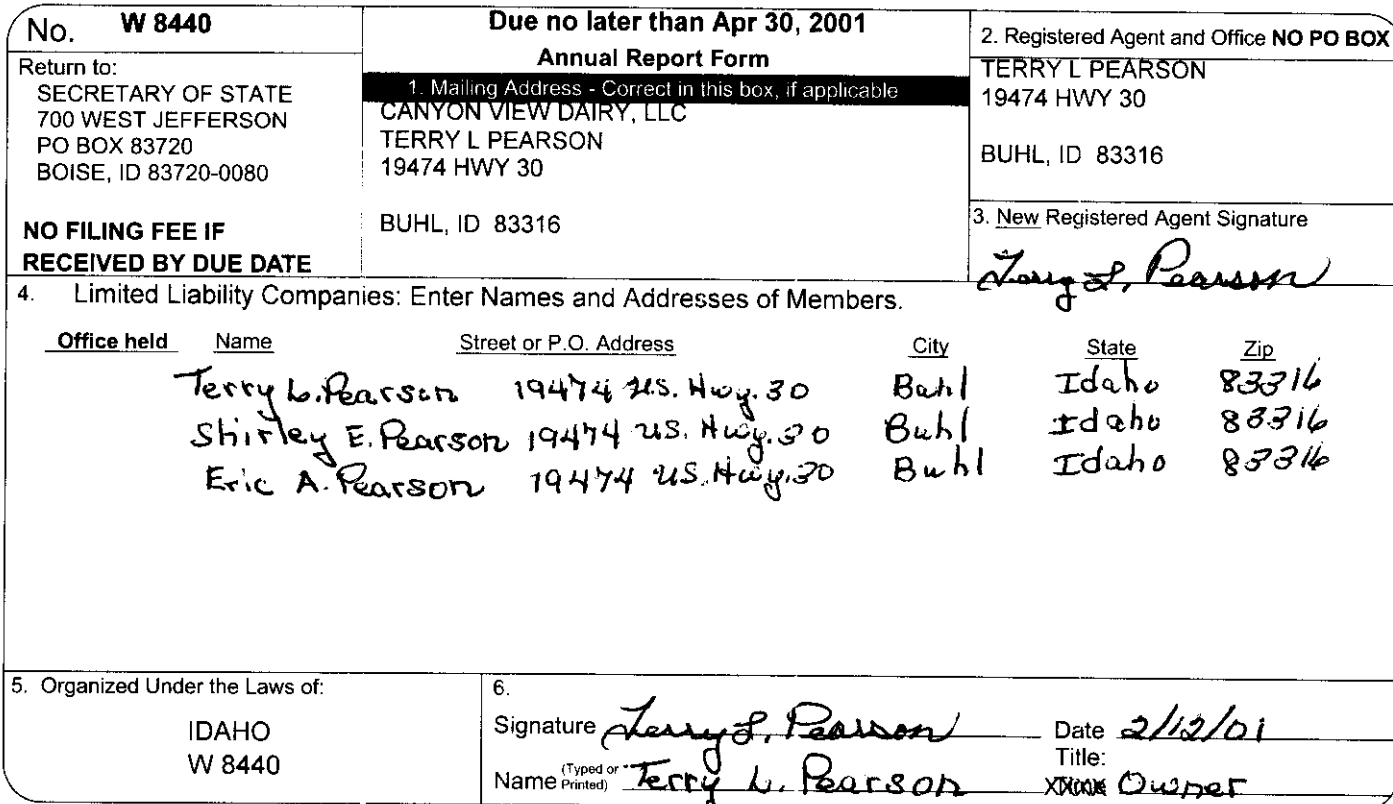 No. W 8440
Return to:
SECRETARY OF STATE
700 WEST JEFFERSON
PO BOX 83720
BOISE, ID 83720-0080
NO FILING FEE IF
RECEIVED BY DUE DATE
Due no later than Apr 30, 2001
Annual Report Form
1. Mailing Address - Correct in this box, if applicable
CANYON VIEW DAIRY, LLC
TERRY L PEARSON
19474 HWY 30
BUHL, ID 83316
2. Registered Agent and Office NO PO BOX
TERRY L PEARSON
19474 HWY 30
BUHL, ID 83316
3. New Registered Agent Signature
Terry L. Pearson
4. Limited Liability Companies: Enter Names and Addresses of Members.
Office held Name Street or P.O. Address City State Zip
Terry L. Pearson 19474 U.S. Hwy. 30 Buhl Idaho 83316
Shirley E. Pearson 19474 U.S. Hwy. 30 Buhl Idaho 83316
Eric A. Pearson 19474 U.S. Hwy. 30 Buhl Idaho 83316
5. Organized Under the Laws of:
IDAHO
W 8440
6.
Signature Terry L. Pearson Date 2/12/01
Name (Typed or Printed) Terry L. Pearson Title: Owner